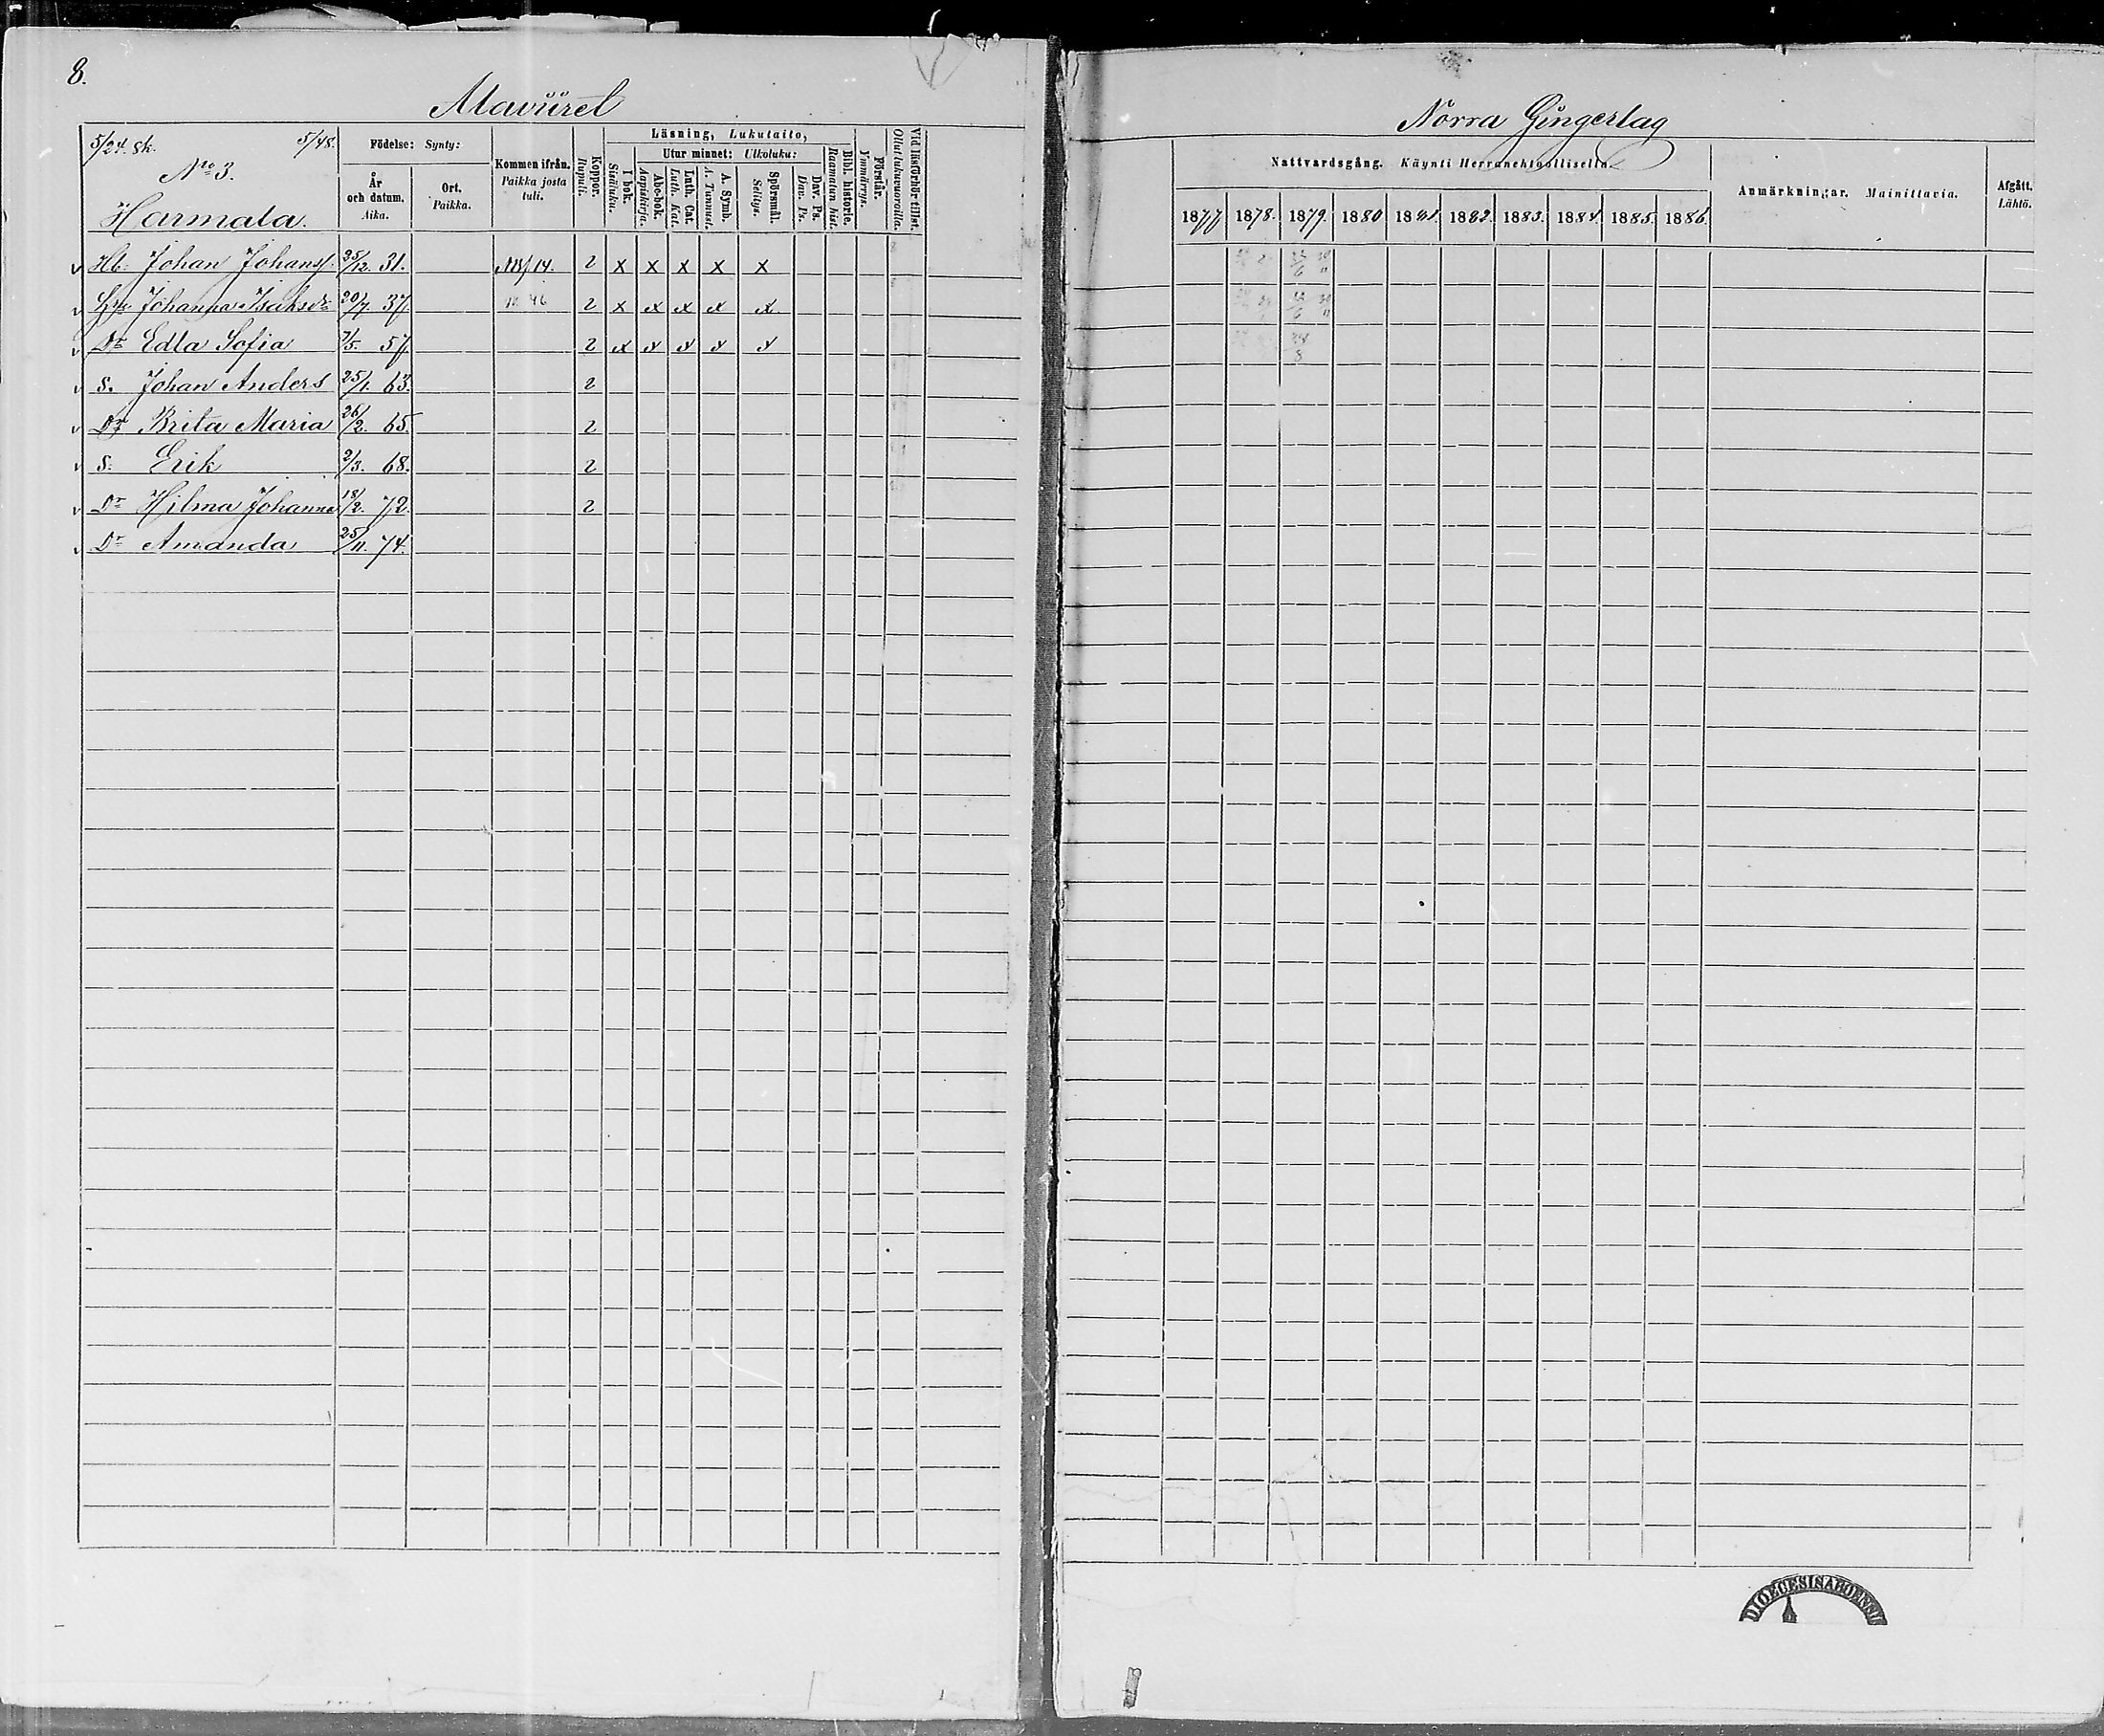 8.
Alaviiret
Norra Gingerlag
5/24. sk. 5/48.
No 3.
Harmala.
Födelse: Synty:
År och datum. Aika.
Ort. Paikka.
Kommen ifrån. Paikka josta tuli.
Koppor. Rupuli.
Läsning, Lukutaito,
I bok. Sisäluku.
Utur minnet: Ulkoluku:
Abc-bok. Aapiskirja.
Luth. Cat. Luth. Kat.
A. Symb. A. Tunnust.
Spörsmål. Selitys.
Dav. Ps. Dav. Ps.
Bibl. historie. Raamatun hist.
Förstår. Ymmärrys.
Vid läsförhör tillst. Ollut lukuvuoroilla.
Nattvardsgång. Käynti Herranehtoollisella.
1877 1878. 1879. 1880 1881. 1882. 1883. 1884. 1885. 1886.
Anmärkningar. Mainittavia.
Afgått. Lähtö.
v Hb. Johan Johanss. 25/12. 31. 14. 2 x x x x x
v Johanna Isaksdr 20/7. 37. 2 x x x x x
v Dr Edla Sofia 7/5. 57. 2 x x x x x
v S. Johan Anders 25/1. 63. 2
v Dr Brita Maria 26/2. 65. 2
v S. Erik 2/3. 68. 2
v Dr Hilma Johanna 18/2. 72. 2
v Dr Amanda 25/11. 74.
DIOECESIS ABOENSIS